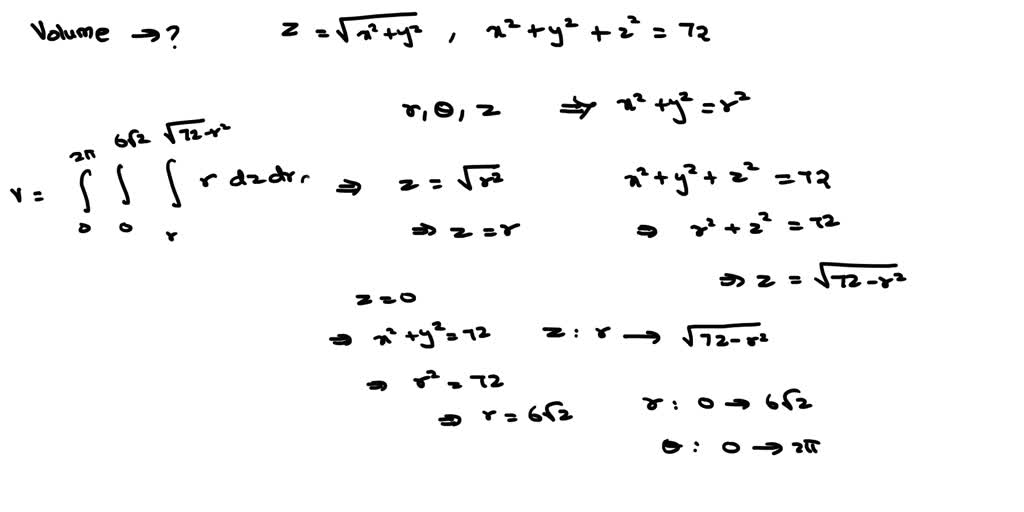 Volume → ? z = √(x²+y²) , x²+y²+z² = 72
r, θ, z ⇒ x²+y² = r²
V = ∫₀^{2π} ∫₀^{6√2} ∫_r^{√(72-r²)} r dz dr
⇒ z = √(r²) x²+y²+z² = 72
⇒ z = r ⇒ r²+z² = 72
⇒ z = √(72-r²)
z = 0
⇒ x²+y² = 72 z : r → √(72-r²)
⇒ r² = 72
⇒ r = 6√2 r : 0 → 6√2
θ : 0 → 2π